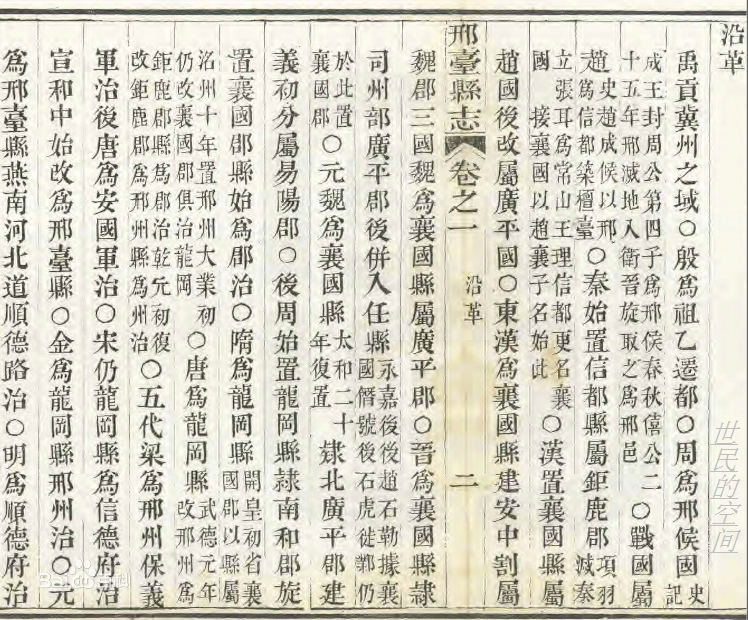 沿革
禹貢冀州之域〇殷爲祖乙遷都〇周爲邢侯國史記
成王封周公第四子爲邢侯春秋僖公二
十五年邢滅地入衛晉旋取之爲邢邑
〇戰國屬
趙
史趙成侯以邢
爲信都築檀臺
〇秦始置信都縣屬鉅鹿郡
項羽
滅秦
立張耳爲常山王理信都更名襄
國 接襄國以趙襄子名始此
〇漢置襄國縣屬
趙國後改屬廣平國〇東漢爲襄國縣建安中割屬
邢臺縣志 卷之一 沿革 二
魏郡三國魏爲襄國縣屬廣平郡〇晉爲襄國縣隸
司州部廣平郡後併入任縣
永嘉後後趙石勒據襄
國僭號後石虎徙鄴仍
於此置
襄國郡
〇元魏爲襄國縣
太和二十
年復置
隸北廣平郡建
義初分屬易陽郡〇後周始置龍岡縣隸南和郡旋
置襄國郡縣始爲郡治〇隋爲龍岡縣
開皇初省襄
國郡以縣屬
洺州十年置邢州大業初
仍改襄國郡俱治龍岡
〇唐爲龍岡縣
武德元年
改邢州爲
鉅鹿郡縣爲郡治乾元初復
改鉅鹿郡爲邢州縣爲州治
〇五代梁爲邢州保義
軍治後唐爲安國軍治〇宋仍龍岡縣爲信德府治
宣和中始改爲邢臺縣〇金爲龍岡縣邢州治〇元
爲邢臺縣燕南河北道順德路治〇明爲順德府治
世民的空间
Bai百科